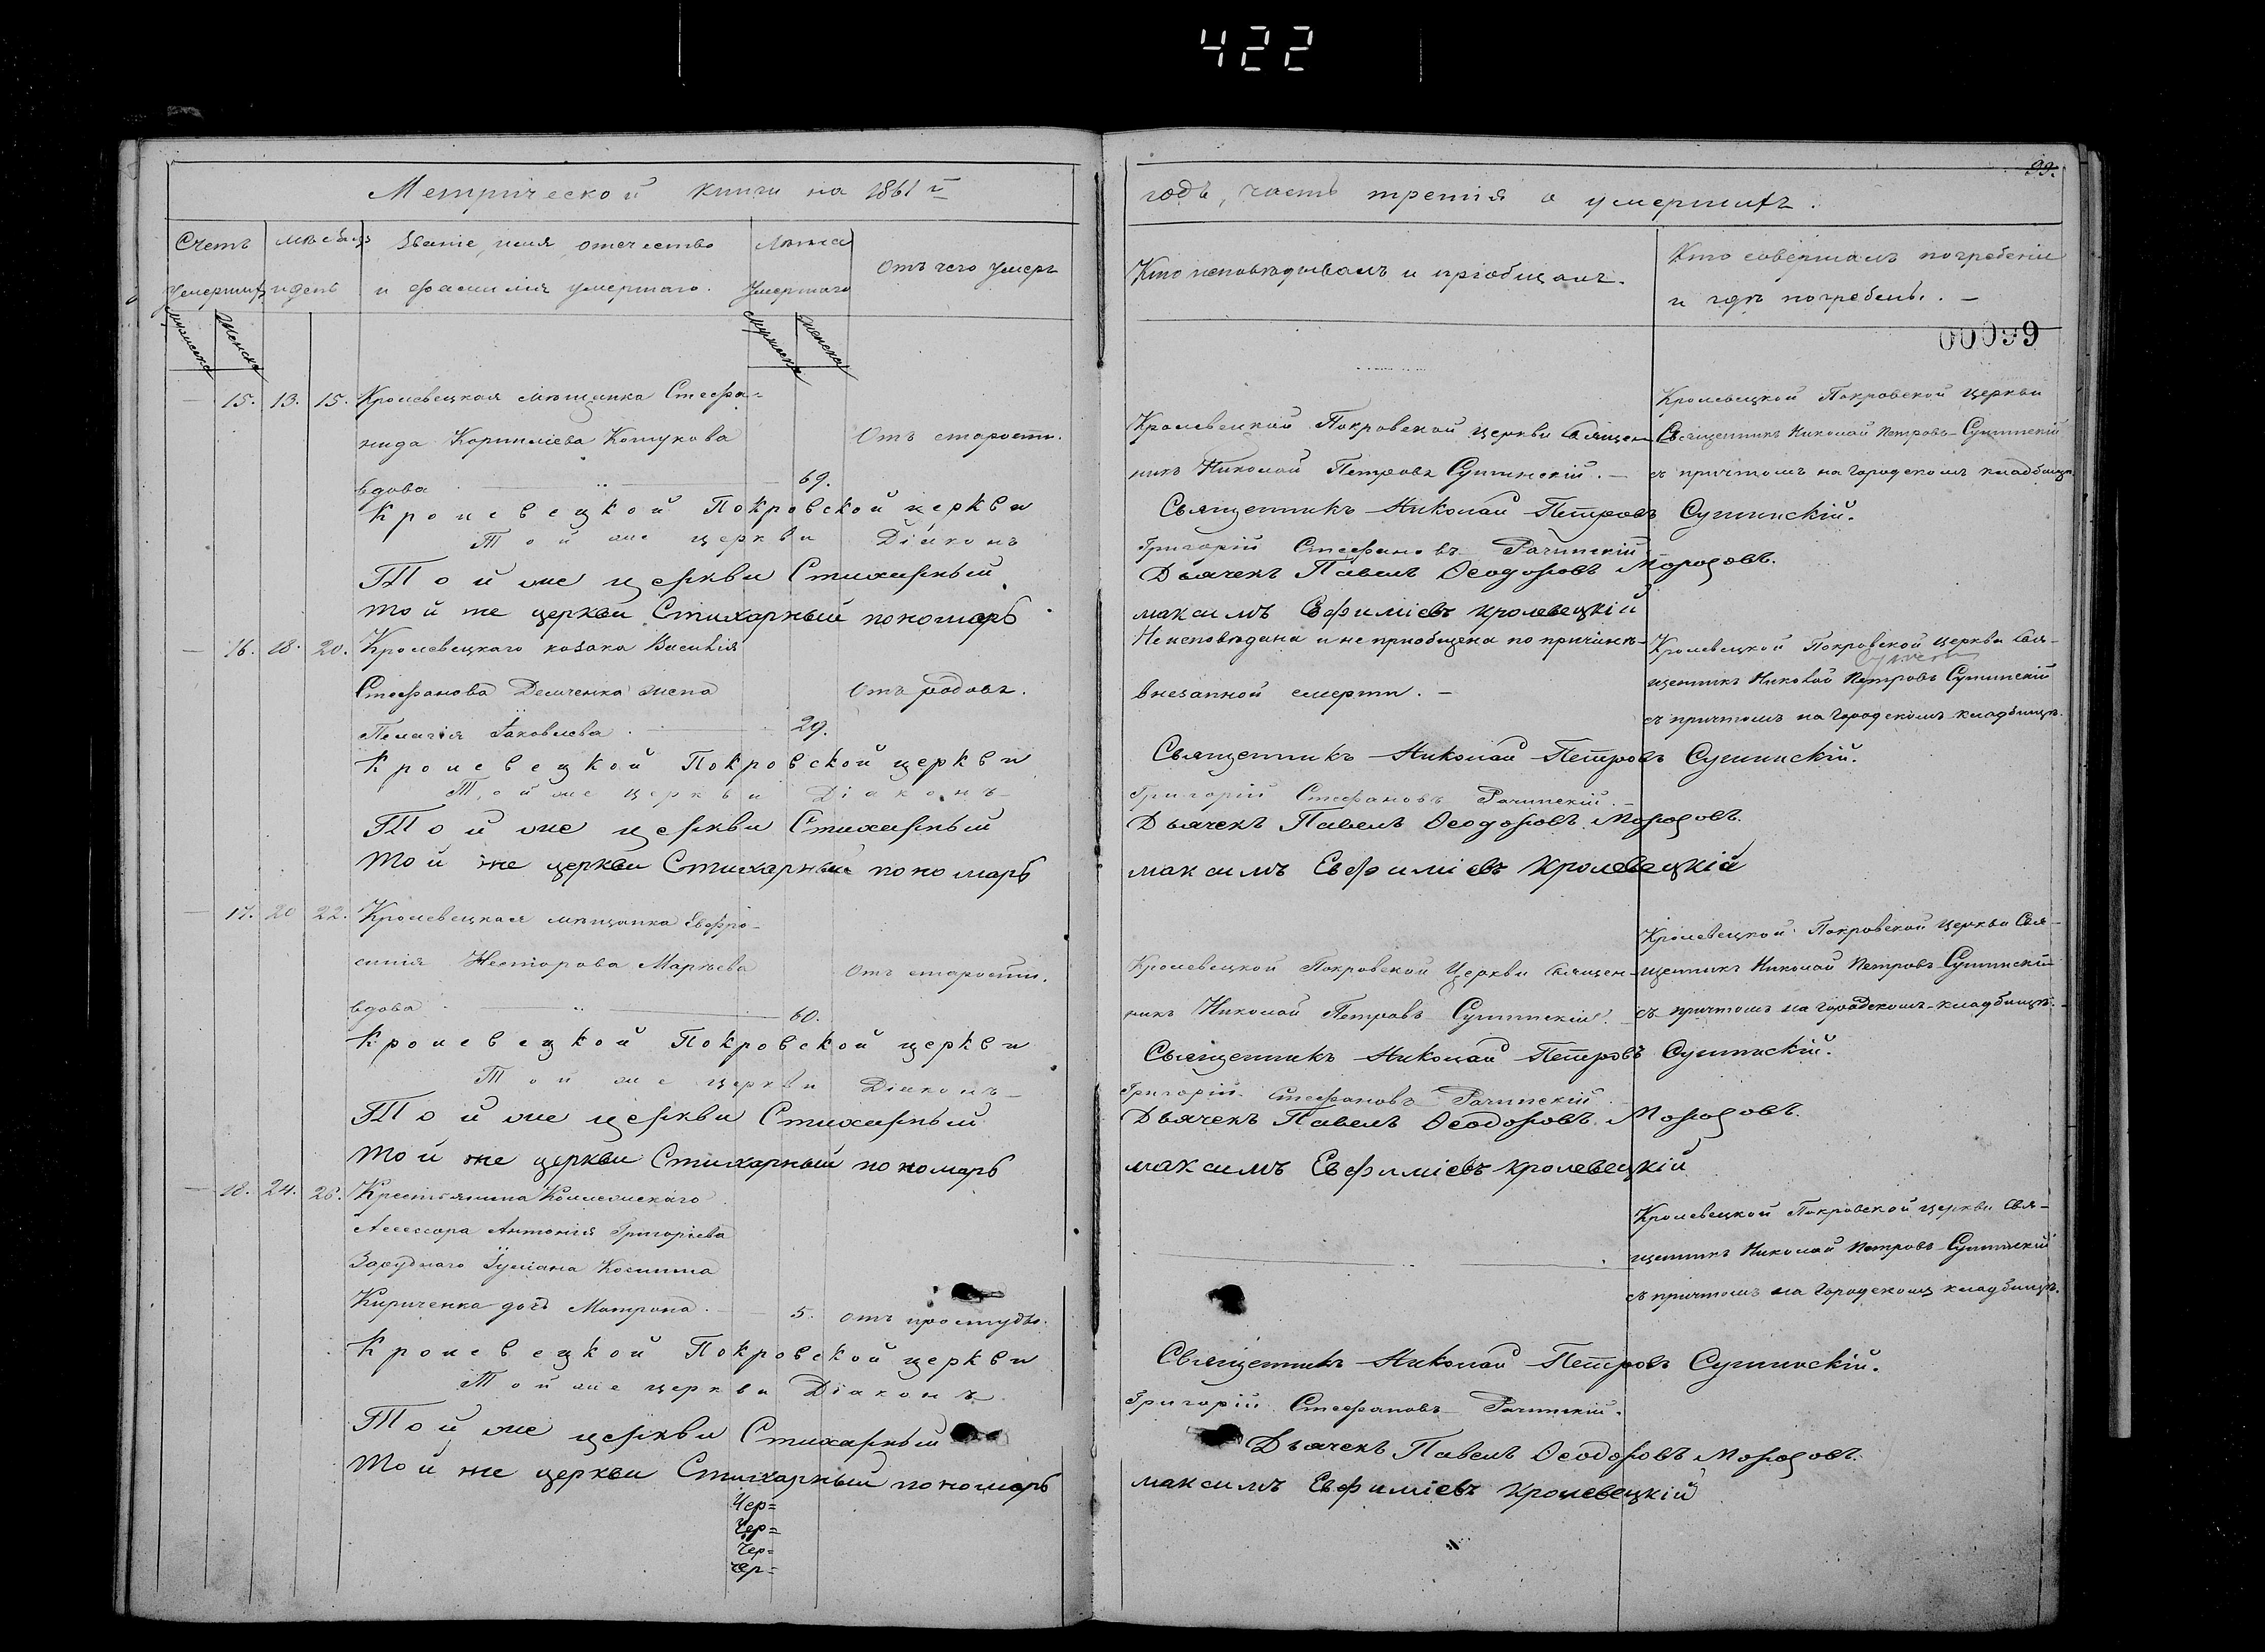 422
99.
Метрической книги на 1861 й
годъ, часть третія о умершихъ.
Счетъ умершихъ
мѣсяцъ и день
Званіе, имя, отечество
и фамилія умершаго.
Лѣта умершаго
Отъ чего умеръ
Кто исповѣдывалъ и пріобщалъ.
Кто совершалъ погребеніе
и гдѣ погребены. —
Мужеска Женска
Мужеска Женска
00099
— 15. 13. 15. Кролевецкая мѣщанка Стефа=
нида Корнилiева Кошукова
вдова 69.
Отъ старости.
Кролевецкой Покровской церкви Священ
никъ Николай Петровъ Сушинскій. —
Кролевецкой Покровской церкви
Священникъ Николай Петровъ Сушинскій
съ причтомъ на городскомъ кладбищѣ.
Кролевецкой Покровской церкви Священникъ Николай Петровъ Сушинскій.
Той же церкви Діаконъ Григорій Стефановъ Рачинскій
Той же церкви Стихарный Дьячекъ Павелъ Ѳеодоровъ Морозовъ.
той же церкви Стихарный пономарь максимъ Евфиміевъ Кролевецкій
— 16. 18. 20. Кролевецкаго козака Василія
Стефанова Демченка жена
Пелагія Іаковлева 29.
Отъ родовъ.
Не исповѣдана и не приобщена по причинѣ
внезапной смерти. —
Кролевецкой Покровской церкви Свя-
щенникъ Николай Петровъ Сушинскій
съ причтомъ на городскомъ кладбищѣ.
Кролевецкой Покровской церкви Священникъ Николай Петровъ Сушинскій.
Той же церкви Діаконъ Григорій Стефановъ Рачинскій. —
Той же церкви Стихарный Дьячекъ Павелъ Ѳеодоровъ Морозовъ.
той же церкви Стихарный пономарь максимъ Евфиміевъ Кролевецкій
— 17. 20 22. Кролевецкая мѣщанка Евфро-
синія Несторова Маркева
вдова 60.
Отъ старости.
Кролевецкой Покровской Церкви Священ-
никъ Николай Петровъ Сушинскій.
Кролевецкой Покровской церкви Свя-
щенникъ Николай Петровъ Сушинскій
съ причтомъ на городскомъ кладбищѣ. —
Кролевецкой Покровской церкви Священникъ Николай Петровъ Сушинскій.
Той же церкви Діаконъ Григорій Стефановъ Рачинскій
Той же церкви Стихарный Дьячекъ Павелъ Ѳеодоровъ Морозовъ.
той же церкви Стихарный пономарь максимъ Евфиміевъ Кролевецкій
— 18. 24. 26. Крестьянина Коллежскаго
Ассесора Антонія Григоріева
Заруднаго Іуліана Космина
Кириченка дочь Матрона. 5. отъ простуды.
Кролевецкой Покровской церкви Свя-
щенникъ Николай Петровъ Сушинскій
съ причтомъ на городскомъ кладбищѣ.
Кролевецкой Покровской церкви Священникъ Николай Петровъ Сушинскій.
Той же церкви Діаконъ Григорій Стефановъ Рачинскій.
Той же церкви Стихарный Дьячекъ Павелъ Ѳеодоровъ Морозовъ.
той же церкви Стихарный пономарь максимъ Евфиміевъ Кролевецкій
Чер=
Чер=
Чер=
Чер=